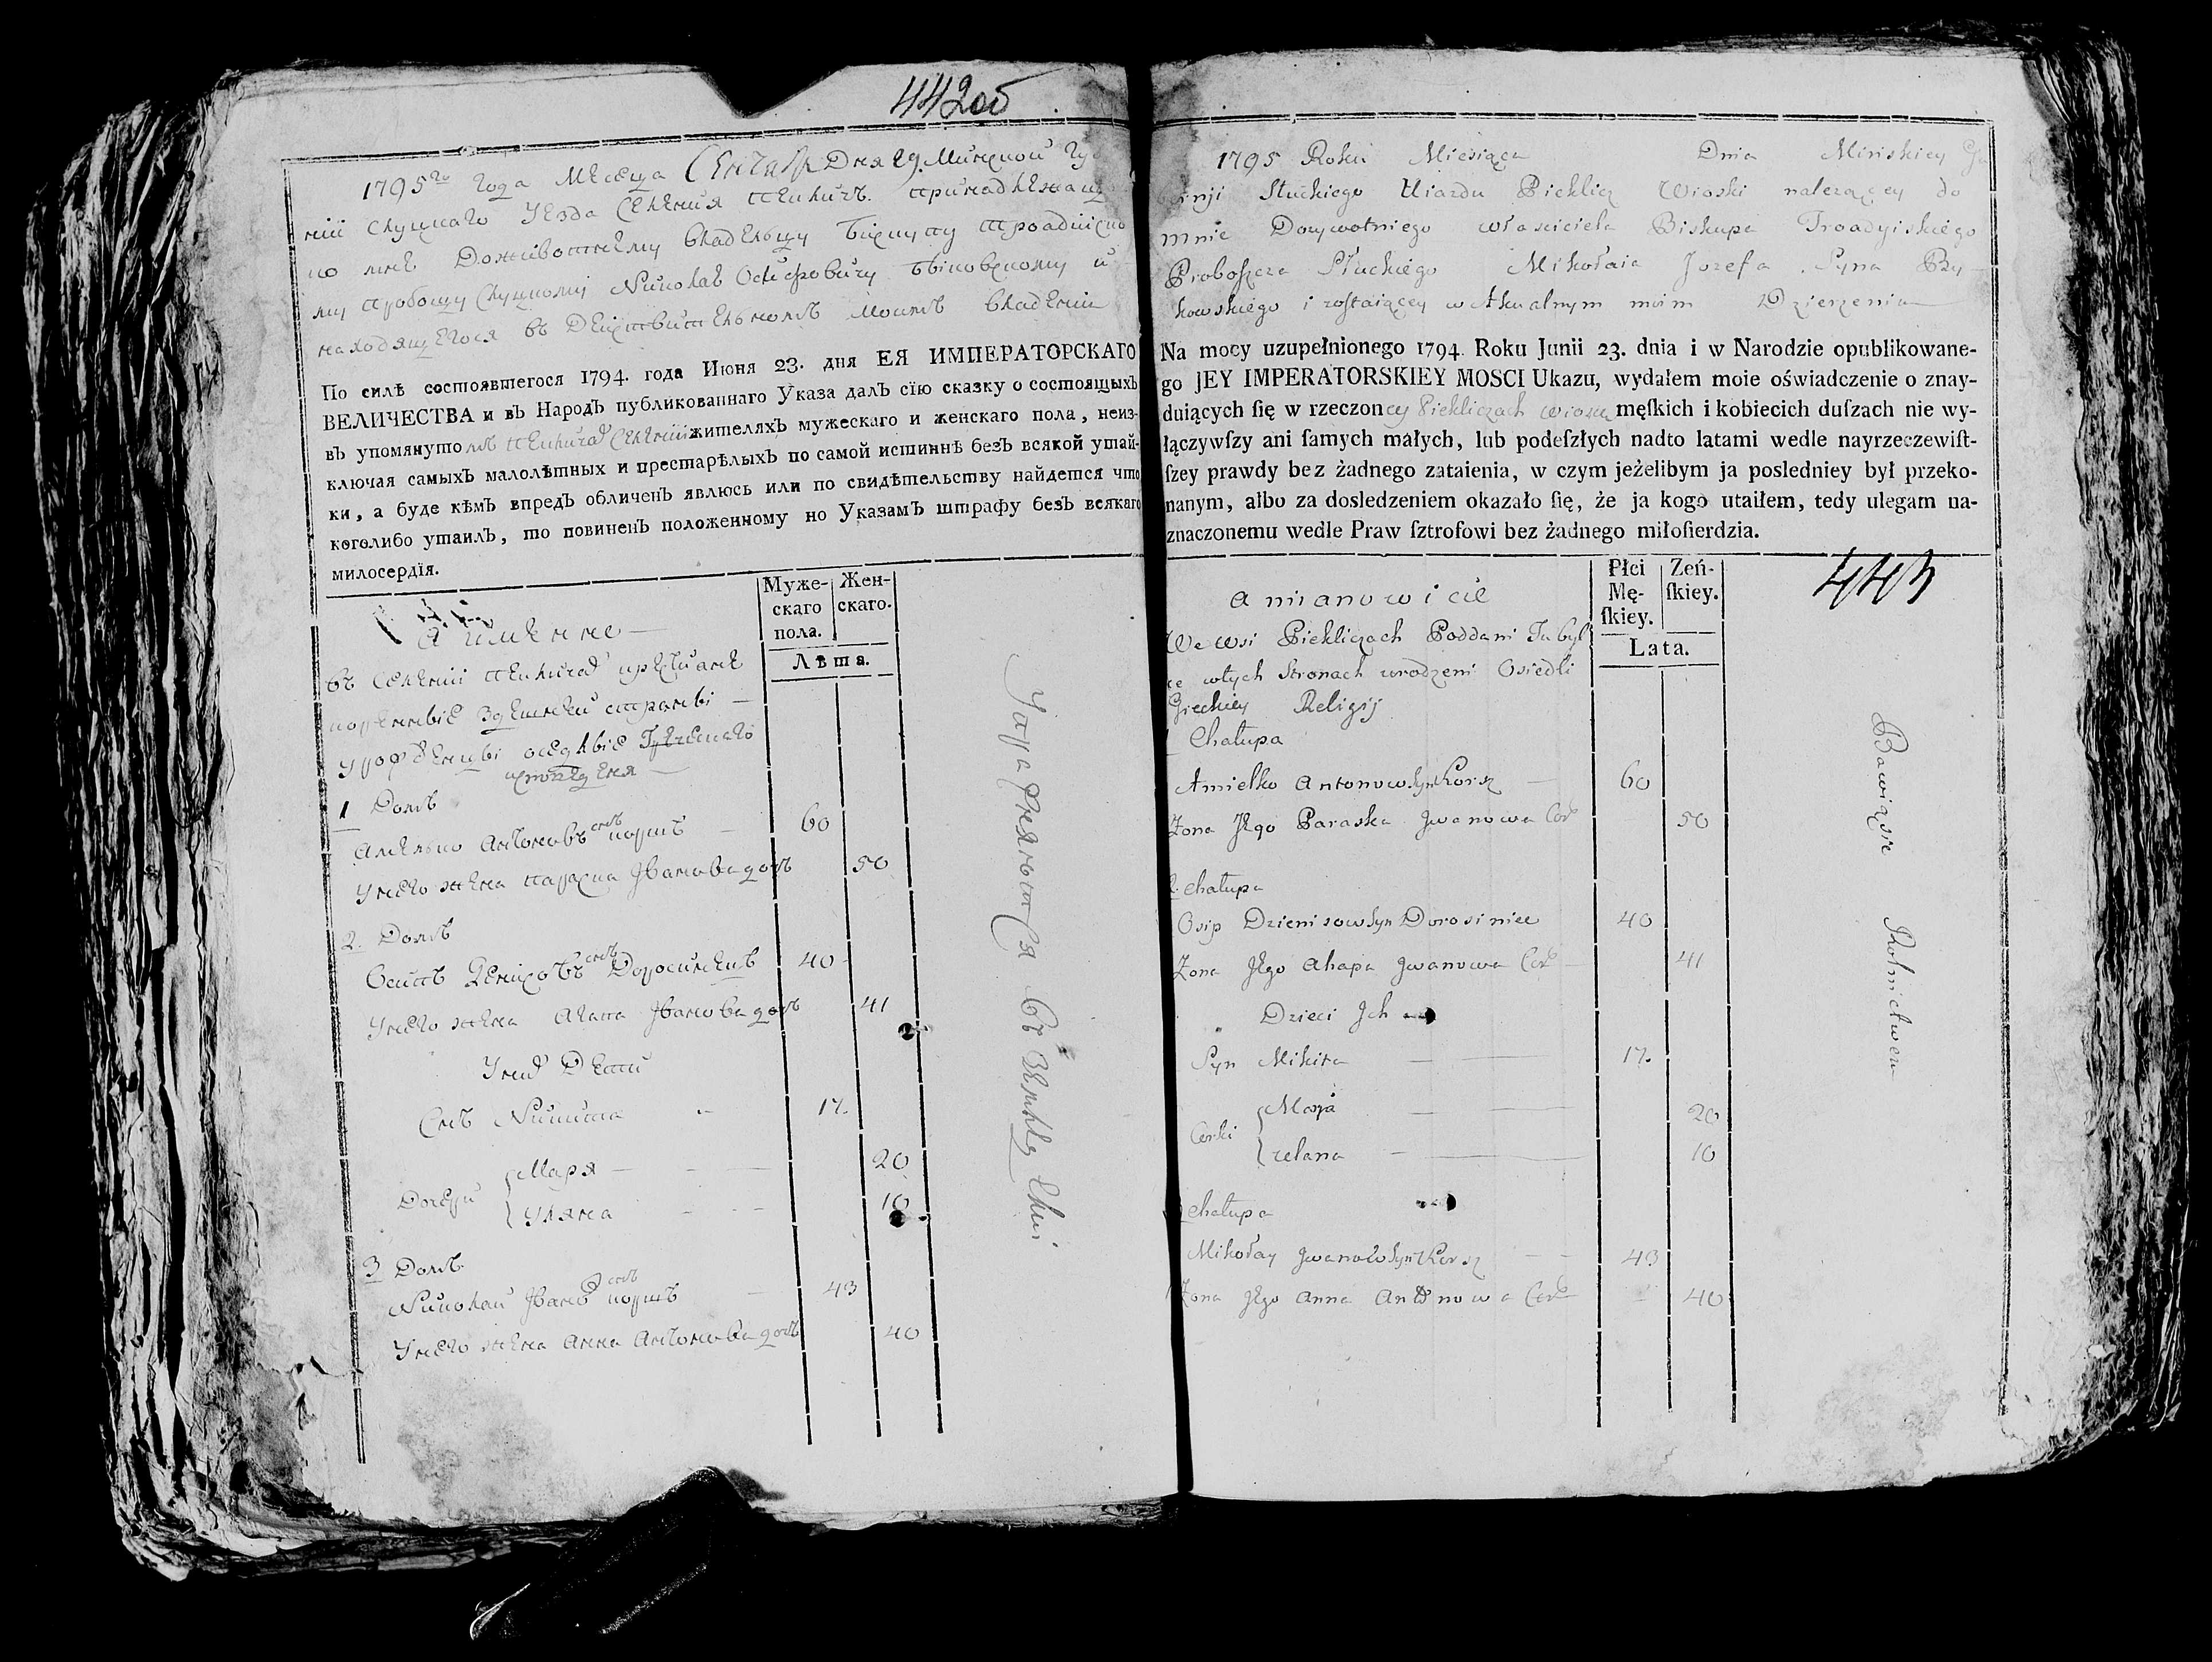 442об
1795го Года Месеца Сентября Дня 29. Минской Губ
нii Слуцкаго Уезда Селения Пекличъ. принадлежащ
по мне Доживотнему владельцу Бискупу Троадийско
му пробощу Слуцкому Николаю Осифовичу Быковскому и
находящегося въ Действительномъ моемъ владении
По силѣ состоявшегося 1794. года Июня 23. дня ЕЯ ИМПЕРАТОРСКАГО
ВЕЛИЧЕСТВА и вЪ НародЪ публикованнаго Указа далЪ сїю сказку о состоящыхЪ
вЪ упомянутомъ Пекличах Селении жителяхЪ мужескаго и женскаго пола, неиз-
ключая самыхЪ малолѣтныхЪ и престарѣлыхЪ по самой истиннѣ безЪ всякой утай-
ки, а буде кѣмЪ впредЪ обличенЪ явлюсь или по свидѣтельству найдется что
коголибо утаилЪ, то повиненЪ положенному по УказамЪ штрафу безЪ всякаго
милосердїя.
Муже-
скаго
пола.
Жен-
скаго.
Лѣта.
А именно
въ Селении Пекличах крестиане
коренные здешней стороны
урожденцы оседлые Греческаго
исповедения
1 Домъ
Амелько Антоновъ сынъ Коршъ 60
У него жена Параска Иванова дочь 50
2. Домъ
Осипъ Денисовъ сынъ Доросинецъ 40
У него жена Агапа Иванова дочь 41
У них Дети
Сынъ Никита 17.
Дочери Маря 20
Уляна 10
3 Домъ
Николай Ивановъ сынъ Коршъ 43
У него жена Анна Антонова дочь 40
Упражняются въ Земледелии
1795 Roku Miesiąca Dnia Minskiey Gu
bernji Słuckiego Uiazdu Pieklicz Wioski nalezącey do
mnie Dozywotniego własciciela Biskupa Troadyiskiego
Proboszcza Słuckiego Mikołaia Jozefa Syna By-
kowskiego i zostaiącey w Aktualnym moim Dzierzeniu
Na mocy uzupełnionego 1794. Roku Junii 23. dnia i w Narodzie opublikowane-
go JEY IMPERATORSKIEY MOSCI Ukazu, wydałem moie oświadczenie o znay-
duiących ſię w rzeczoncy Piekliczach wiosce męſkich i kobiecich duſzach nie wy-
łączywſzy ani ſamych małych, lub podeſzłych nadto latami wedle nayrzeczewiſt-
ſzey prawdy bez żadnego zataienia, w czym jeżelibym ja posledniey był przeko-
nanym, albo za dosledzeniem okazało ſię, że ja kogo utaiłem, tedy ulegam na-
znaczonemu wedle Praw ſztrofowi bez żadnego miłoſierdzia.
Płci
Mę-
ſkiey.
Zeń-
ſkiey.
Lata.
443
a mianowicie
We wsi Piekliczach Poddani Tubyl
ce wtych Stronach urodzeni Osiedli
Greckiey Religij
1 Chałupa
Amielko Antonow Syn Korsz 60
Zona Jego Paraska Jwanowa Cor 50
2. Chałupa
Osip Dzienisow Syn Dorosiniec 40
Zona Jego Ahapa Jwanowa Cor 41
Dzieci Jch
Syn Mikita 17.
Corki Marja 20
relana 10
3 Chałupa
Mikołay Jwanow Syn Korsz 43
Zona Jego Anna Antonowa Cor 40
Bawiąsie Rolnictwem